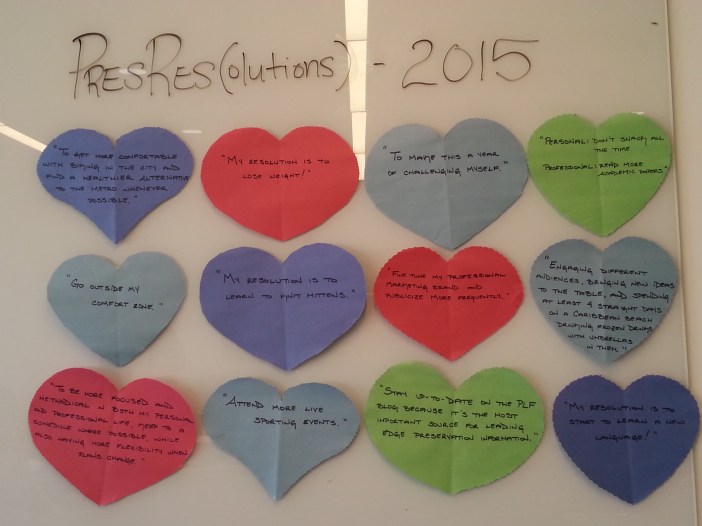 PRESRES(olutions) - 2015
"TO GET MORE COMFORTABLE
WITH BIKING IN THE CITY AND
FIND A HEALTHIER ALTERNATIVE
TO THE METRO WHENEVER
POSSIBLE."
"MY RESOLUTION IS TO
LOSE WEIGHT!"
"TO MAKE THIS A YEAR
OF CHALLENGING MYSELF."
"PERSONAL: DON'T SNACK ALL
THE TIME
PROFESSIONAL: READ MORE
ACADEMIC PAPERS"
"GO OUTSIDE MY
COMFORT ZONE."
"MY RESOLUTION IS TO
LEARN TO KNIT MITTENS."
"FINE TUNE MY PROFESSIONAL
MARKETING BRAND AND
PUBLICIZE MORE FREQUENTLY."
"ENGAGING DIFFERENT
AUDIENCES, BRINGING NEW IDEAS
TO THE TABLE, AND SPENDING
AT LEAST 4 STRAIGHT DAYS
ON A CARIBBEAN BEACH
DRINKING FROZEN DRINKS
WITH UMBRELLAS
IN THEM."
"TO BE MORE FOCUSED AND
METHODICAL IN BOTH MY PERSONAL
AND PROFESSIONAL LIFE, KEEP TO A
SCHEDULE WHERE POSSIBLE, WHILE
ALSO HAVING MORE FLEXIBILITY WHEN
PLANS CHANGE."
"ATTEND MORE LIVE
SPORTING EVENTS."
"STAY UP-TO-DATE ON THE PLF
BLOG BECAUSE IT'S THE MOST
IMPORTANT SOURCE FOR LEADING
EDGE PRESERVATION INFORMATION."
"MY RESOLUTION IS TO
START TO LEARN A NEW
LANGUAGE!"